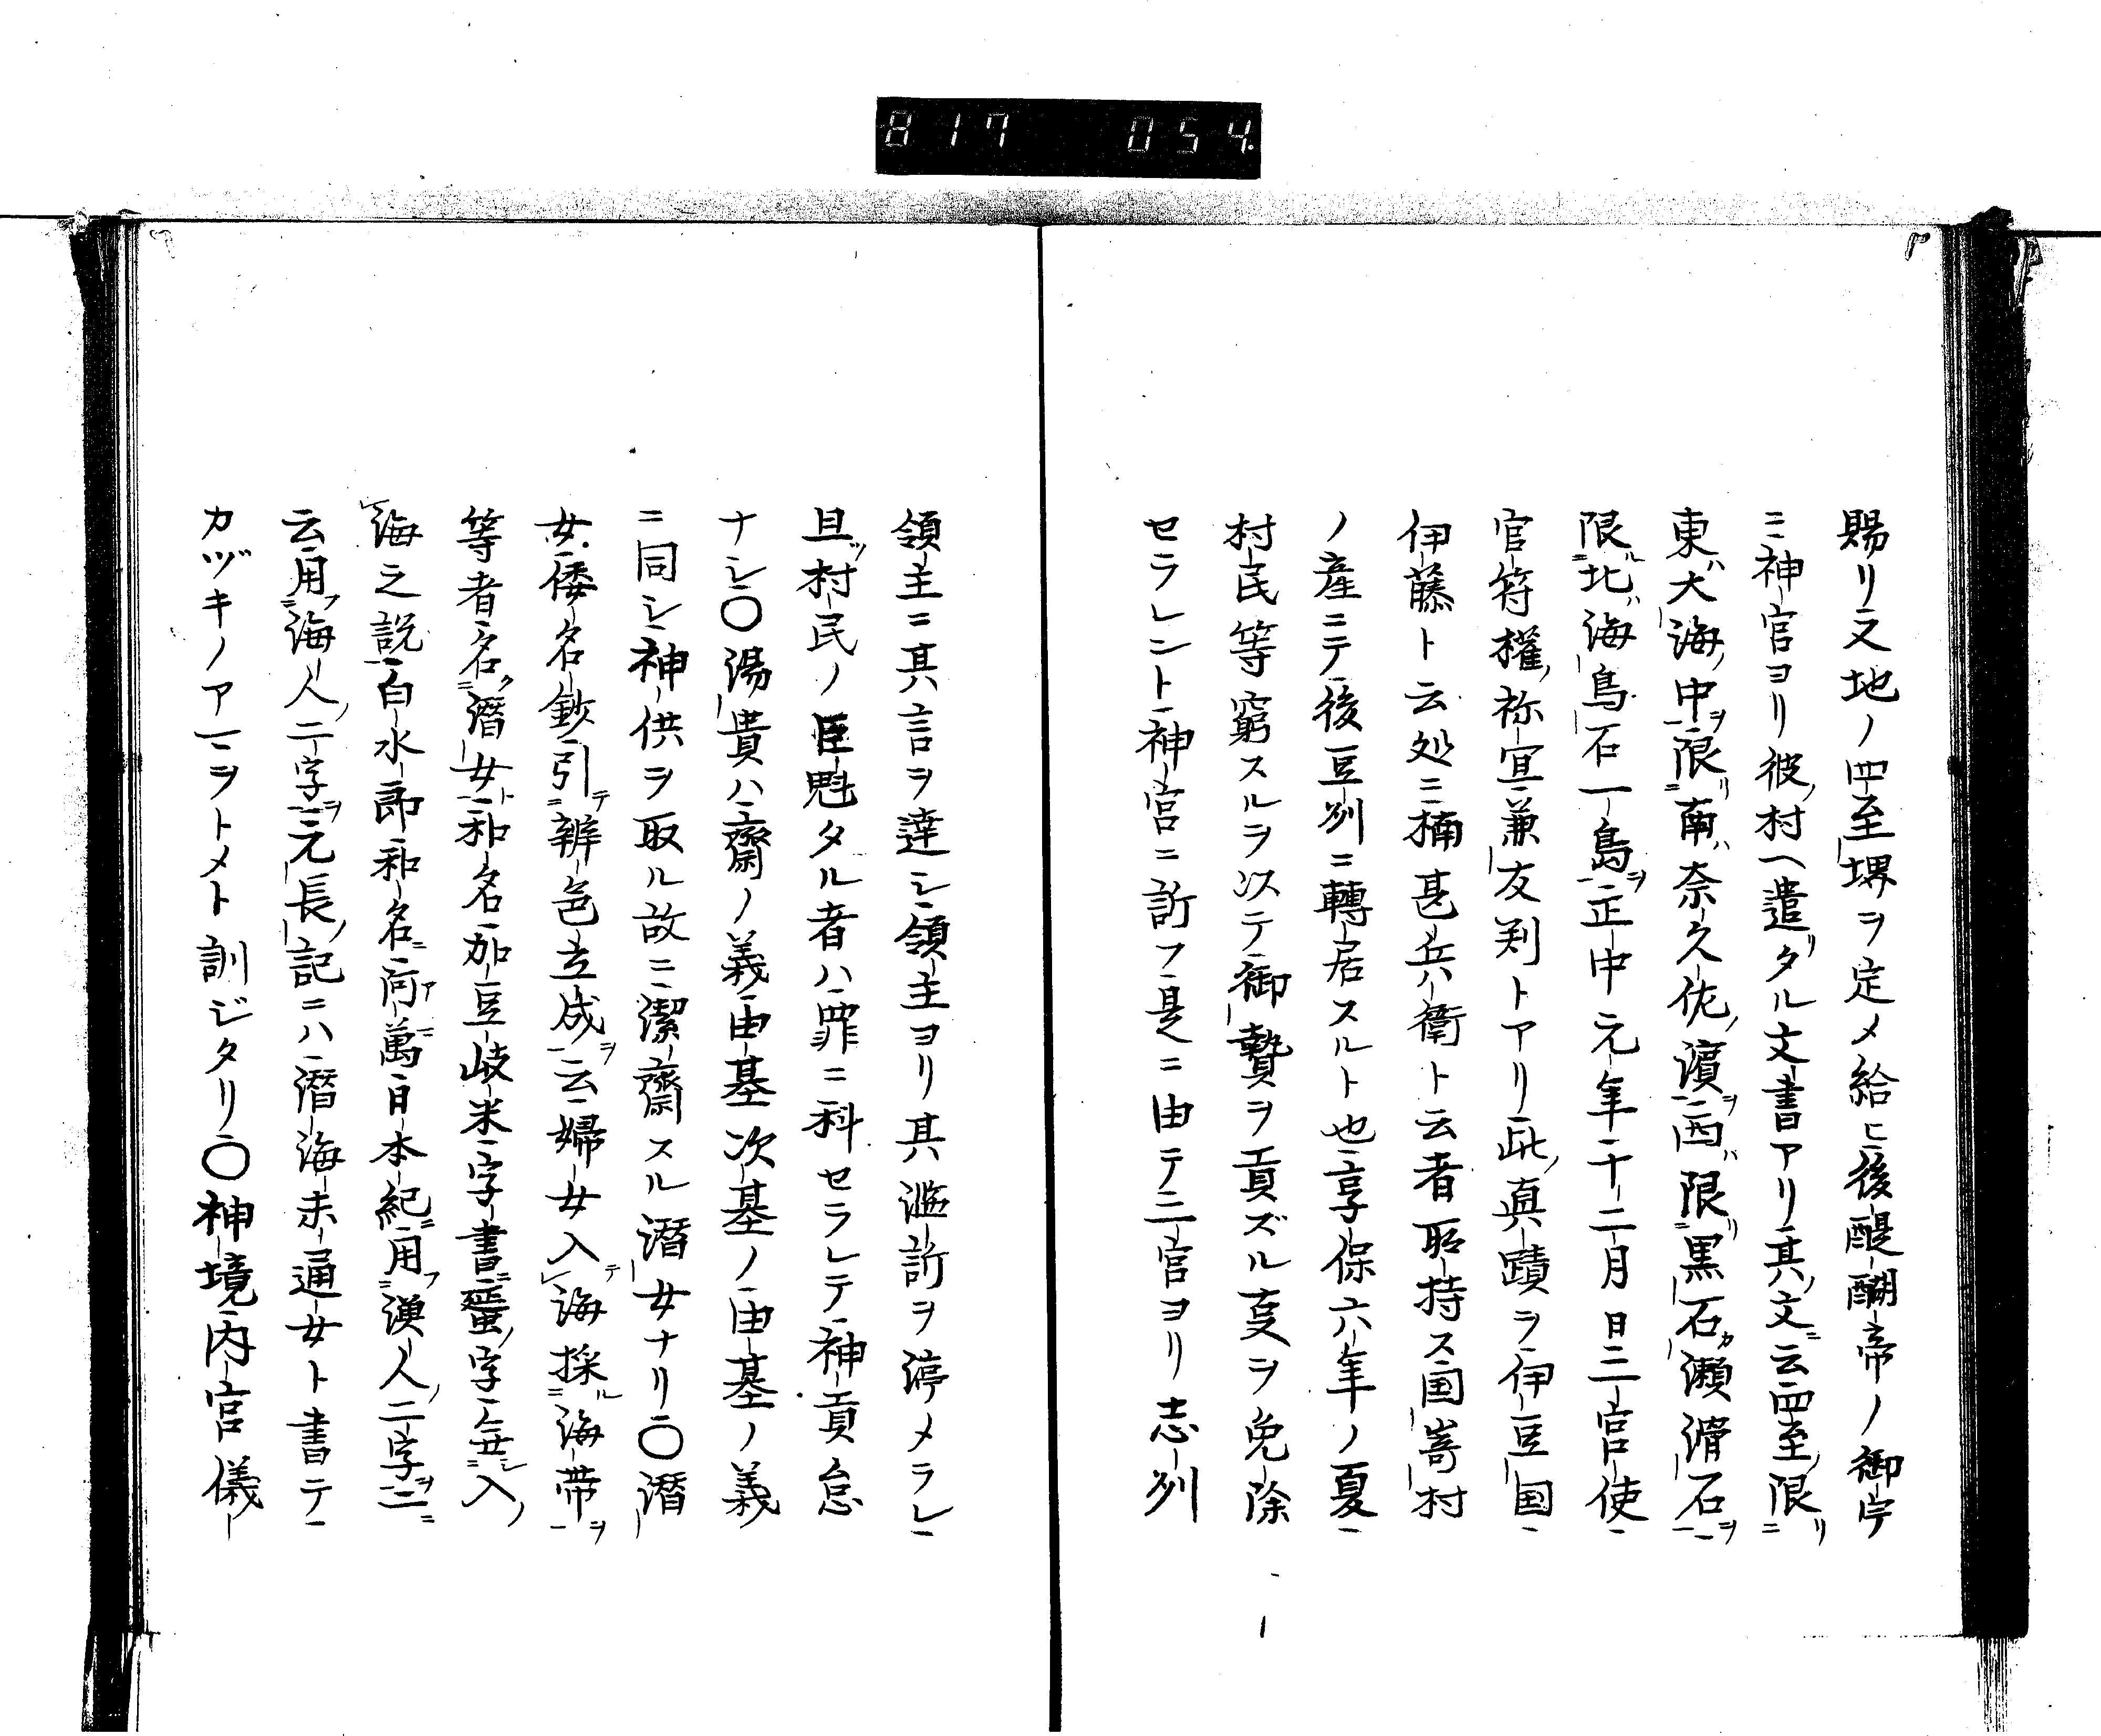 817 054
賜リ又地ノ四至堺ヲ定メ給ヒ後醍醐帝ノ御宇
ニ神官ヨリ彼村ヘ遣タル文書アリ其文云四至限
東大海中限南奈久佐濱西限黒石瀬滑石
限北海鳥石一島正中元年十二月日三宮使
官符權祢宜兼友判トアリ此真蹟ヲ伊豆国
伊藤ト云処ニ楠甚兵衛ト云者所持ス国崎村
ノ産ニテ後豆州ニ轉居スルト也享保六年ノ夏
村民等窮スルヲ以テ御贄ヲ貢ズル変ヲ免除
セラレント神宮ニ訴フ是ニ由テ二宮ヨリ志州
領主ニ其言ヲ達シ領主ヨリ其濫訴ヲ停メラレ
且村民ノ巨魁タル者ハ罪ニ科セラレテ神貢怠
ナシ〇湯貴ハ齋ノ義由基次基ノ由基ノ義
ニ同シ神供ヲ取ル故ニ潔齋スル潛女ナリ〇潛
女倭名鈔引辨色立成云婦女入海採海帯
等者名潛女和名加豆岐米字書蜑字無入
海之説一百水郎和名阿萬日本紀用漁人二字二
云用海人二字元長記ニハ潛海未通女ト書テ
カヅキノアマヲトメト訓ジタリ〇神境内宮儀